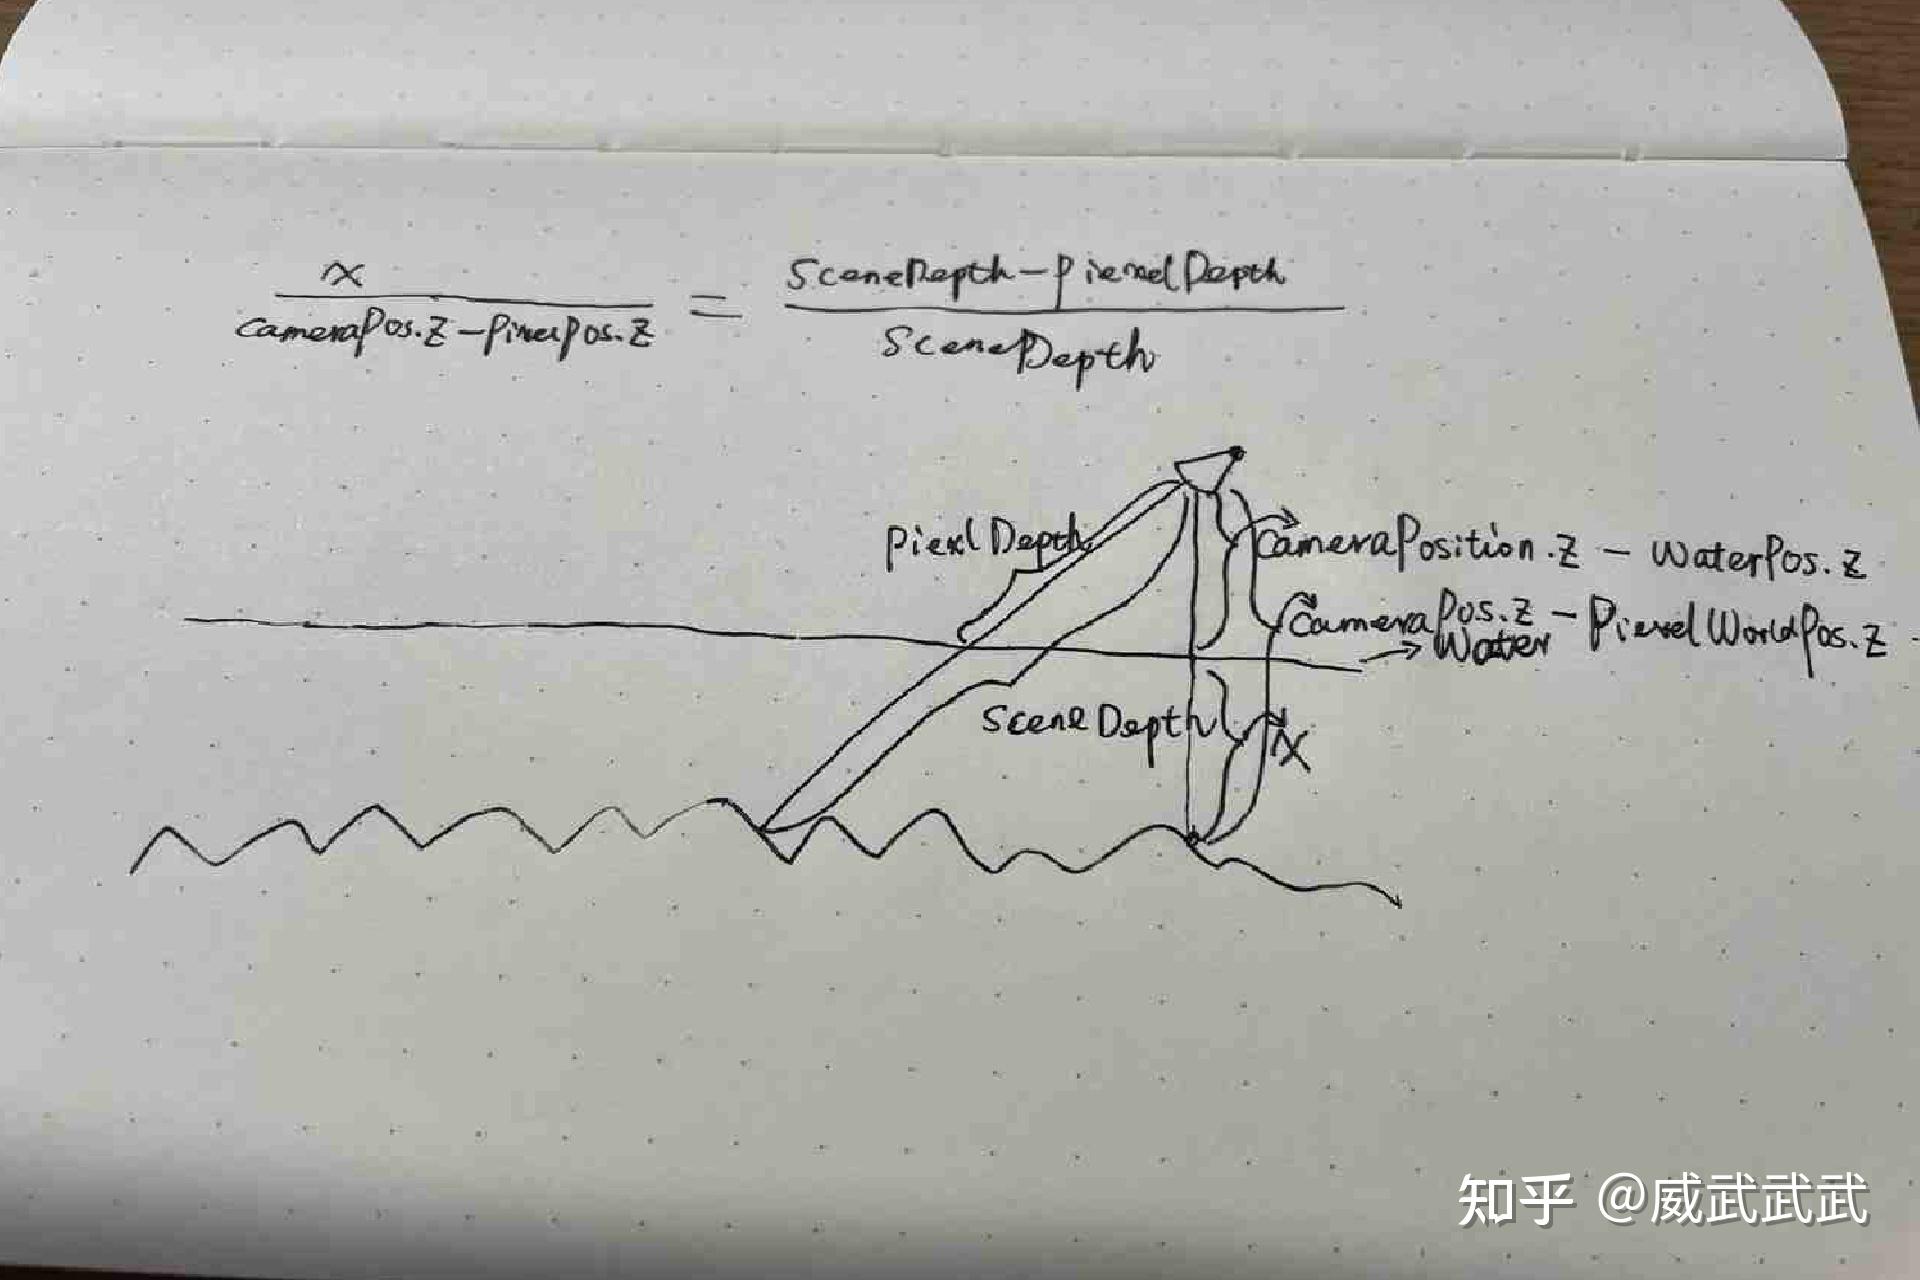 x
CameraPos.Z - PixelPos.Z
=
SceneDepth - PiexelDepth
SceneDepth
PiexlDepth
CameraPosition.Z - WaterPos.Z
CameraPos.Z - PiexelWorldPos.Z
Water
SceneDepth
x
知乎 @威武武武